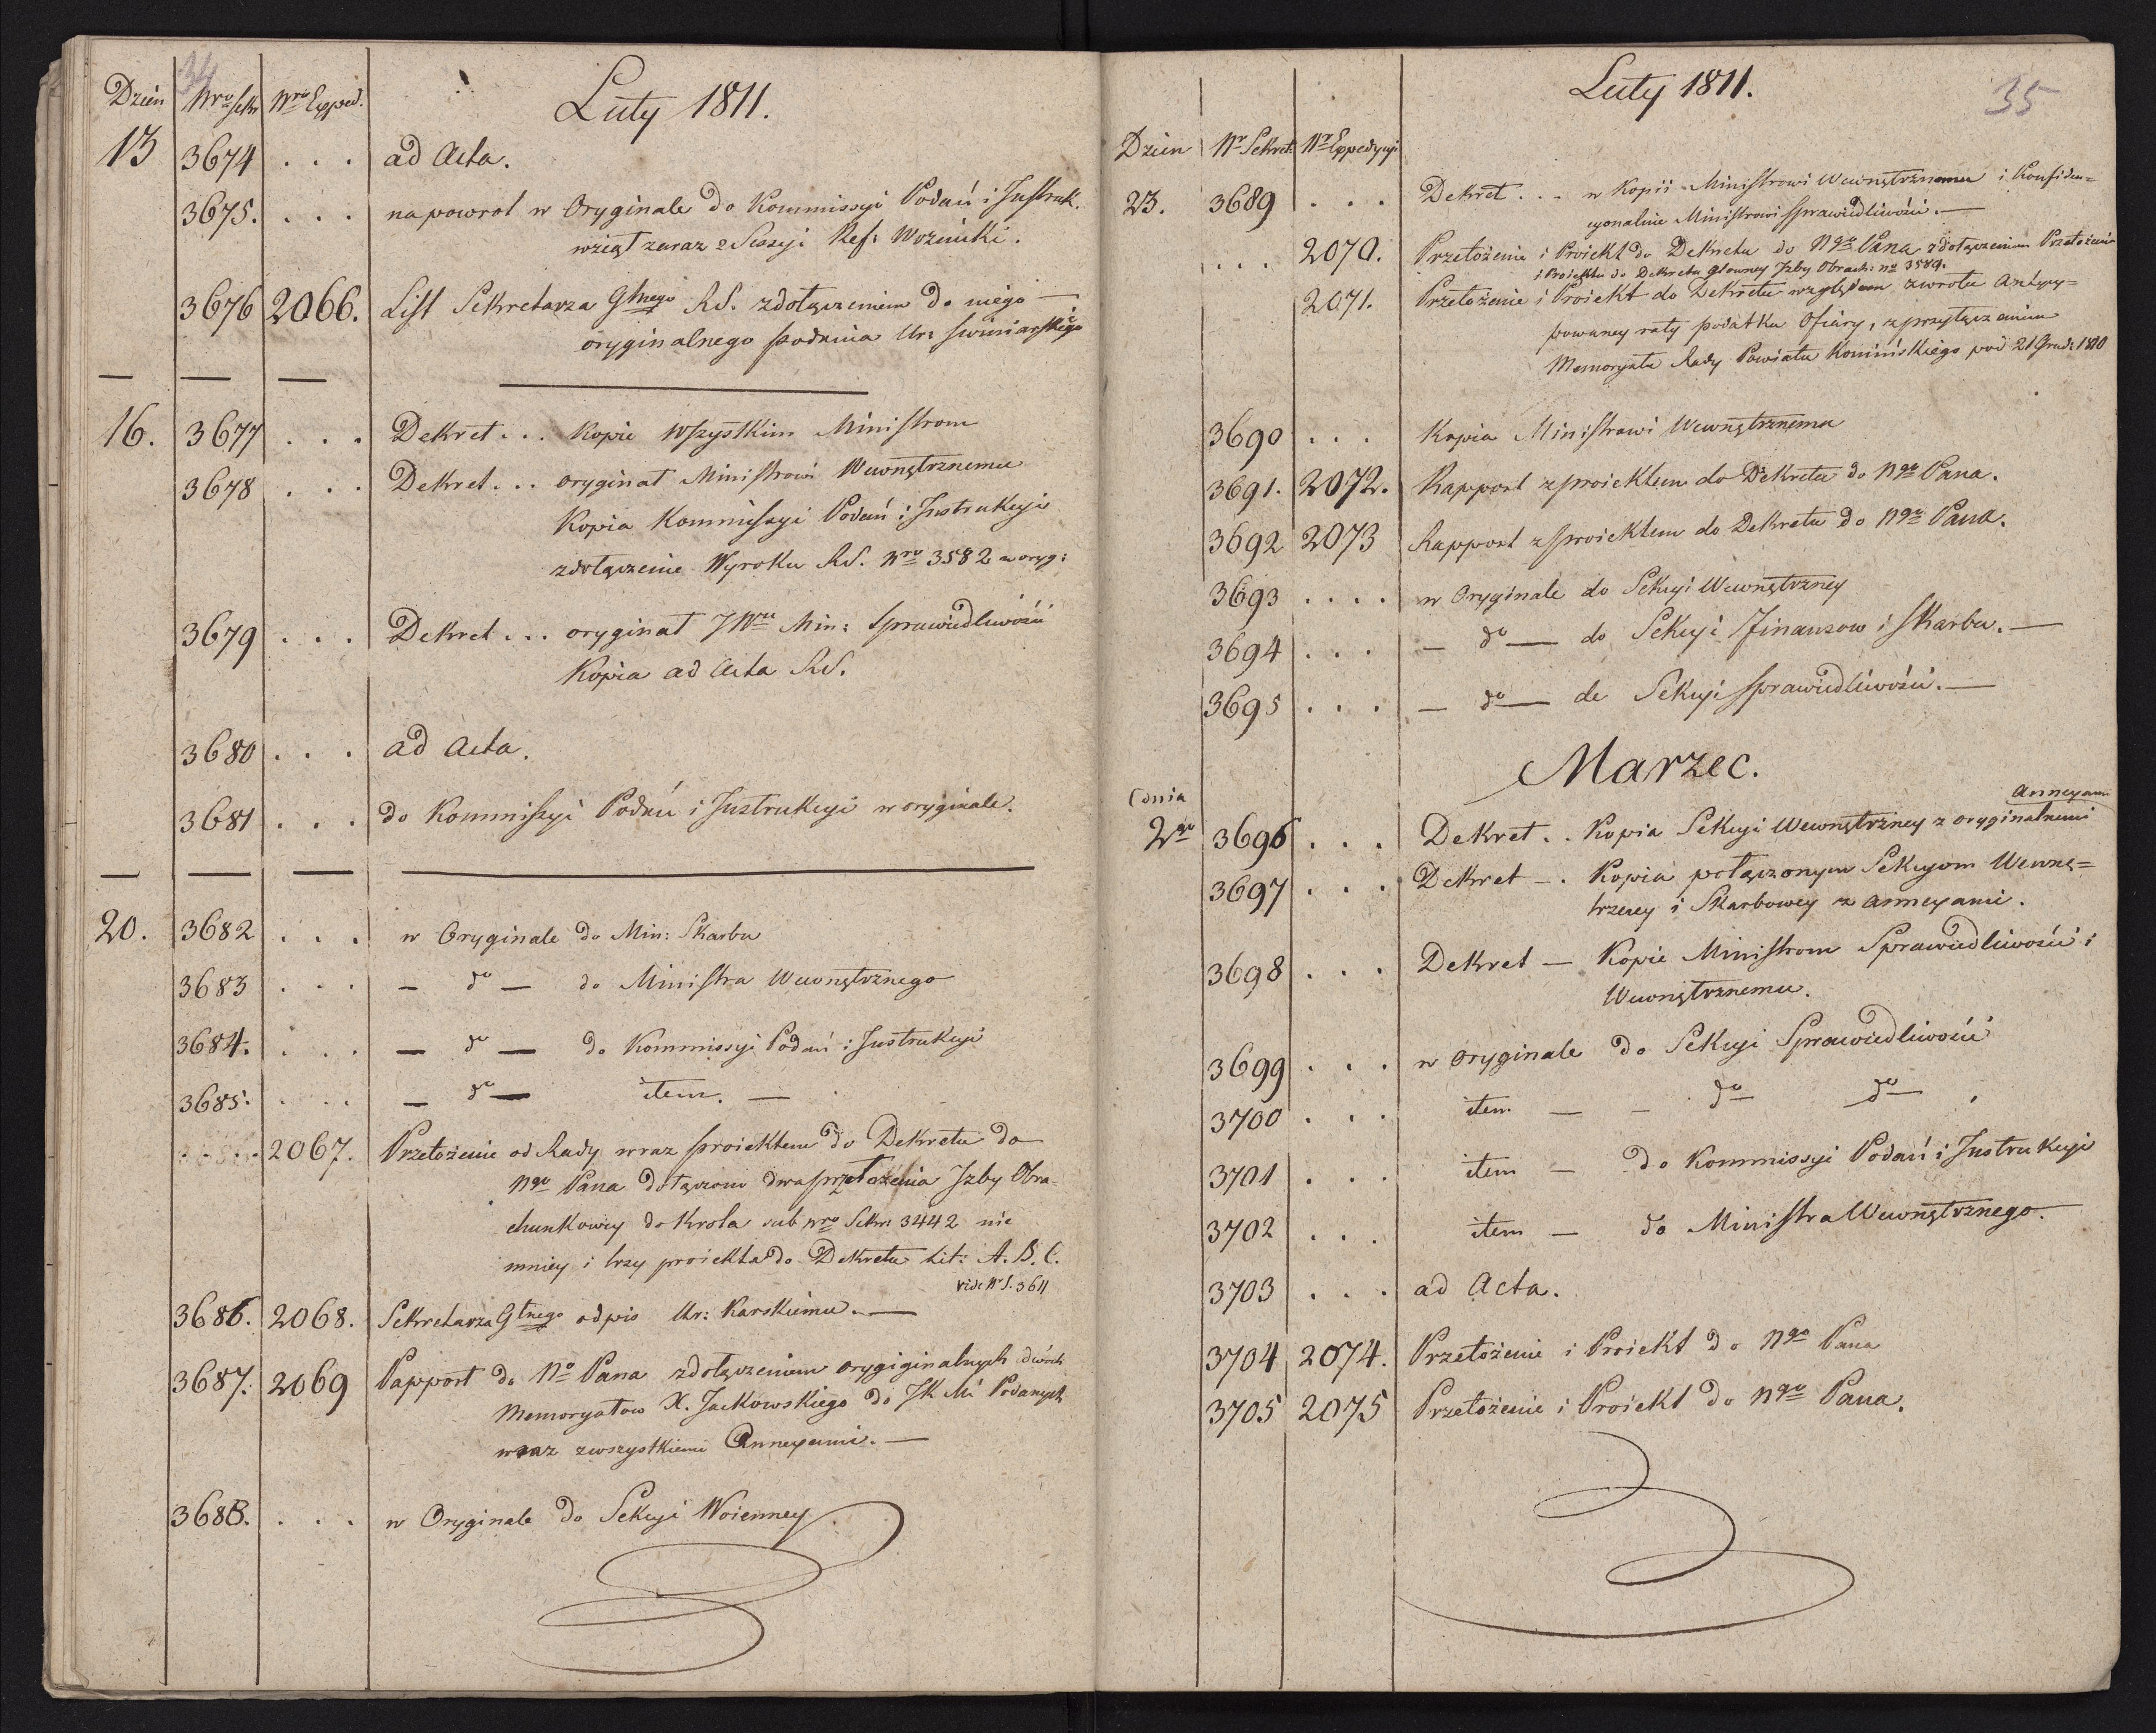 34
Dzień Nro Sekr Nro Exped. Luty 1811.
13 3674 . . . ad Acta.
3675. . . . napowrot w Oryginale do Kommissyi Podań i Instruk.
wziął zaraz z Sessyi Ref: Woźnicki.
3676 2066. List Sekretarza Głnego RS. zdołączeniem do niego —
oryginalnego podania Ur: Swiniarskiego
16. 3677 . . . Dekret . . . Kopie Wszystkim Ministrom
3678 . . . Dekret . . . oryginał Ministrowi Wewnętrznemu
Kopia Kommissyi Podań i Instrukcyi
zdołączenie Wyroku RS. Nro 3582 w oryg:
3679 . . . Dekret . . . oryginał JWu Min: Sprawiedliwości
Kopia ad Acta RS.
3680 . . . ad Acta.
3681 . . . do Kommissyi Podań i Instrukcyi w oryginale.
20. 3682 . . . w Oryginale do Min: Skarbu
3683 . . . — do — do Ministra Wewnętrznego
3684. . . . — do — do Kommissyi Podań i Instrukcyi
3685. . . . — do — item. —
. . . . 2067. Przełożenie od Rady wraz proiektem do Dekretu do
Ngo Pana dołączono dwa przełożenia Izby Obra-
chunkowey do Krola sub Nro Sekr 3442 nie
mniey i trzy proiekta do Dekretu Lit: A. B. C.
vide Nr S. 3611
3686. 2068. Sekretarza Głnego odpis Ur: Karskiemu. —
3687. 2069 Rapport do No Pana zdołączeniem orygiginalnych dwóch
Memoryałow X. Jackowskiego do JK Mi Podanych
wraz zwszystkiemi Annexami. —
3688. . . . w Oryginale do Sekcyi Woienney
Luty 1811. 35
Dzien Nr Sekret: Nro Expedycyi
23. 3689 . . . Dekret . . . w Kopii Ministrowi Wewnętrznemu i Konfiden=
cyonalnie Ministrowi Sprawiedliwości. —
. . . 2070. Przełożenie i Proiekt do Dekretu do Ngo Pana zdołączeniem Przełożenia
i Proiektu do Dekretu Głowney Izby Obrach: no 3589.
2071. Przełożenie i Proiekt do Dekretu względem zwrotu Antycy=
powaney raty podatku Ofiary, z przyłączeniem
Memoryału Rady Powiatu Konińskiego pod 21 Grud: 1810
3690 . . . Kopia Ministrowi Wewnętrznemu
3691. 2072. Rapport z proiektem do Dekretu do Ngo Pana.
3692 2073 Rapport z proiektem do Dekretu do Ngo Pana.
3693 . . . . w Oryginale do Sekcyi Wewnętrzney
3694 . . . — do — do Sekcyi Finansow i Skarbu. —
3695 . . . — do — do Sekcyi Sprawiedliwości. —
Marzec.
dnia
2go 3696 . . . Dekret . . Kopia Sekcyi Wewnętrzney z oryginalnemi Annexami
3697 . . . Dekret — . Kopia połączonym Sekcyom Wewnę=
trzney i Skarbowey z annexami.
3698 . . . Dekret — Kopie Ministrom Sprawiedliwości i
Wewnętrznemu.
3699 . . . w oryginale do Sekcyi Sprawiedliwości
3700 . . . item — — do — do —
3701 . . . item — do Kommissyi Podań i Instrukcyi
3702 . . . item — do Ministra Wewnętrznego.
3703 . . . ad Acta.
3704 2074. Przełożenie i Proiekt do Ngo Pana
3705 2075 Przełożenie i Proiekt do Ngo Pana.